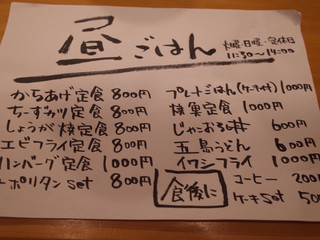 昼ごはん
火曜・日曜・定休日
11:30〜14:00
からあげ定食 800円
ちーずカツ定食 800円
しょうが焼定食 800円
エビフライ定食 800円
ハンバーグ定食 1000円
ナポリタン set 800円
プレートごはん(ケーキ付) 1000円
焼魚定食 1000円
じゃこおろし丼 600円
五島うどん 600円
イワシフライ 1000円
食後に
コーヒー 200
ケーキ set 50